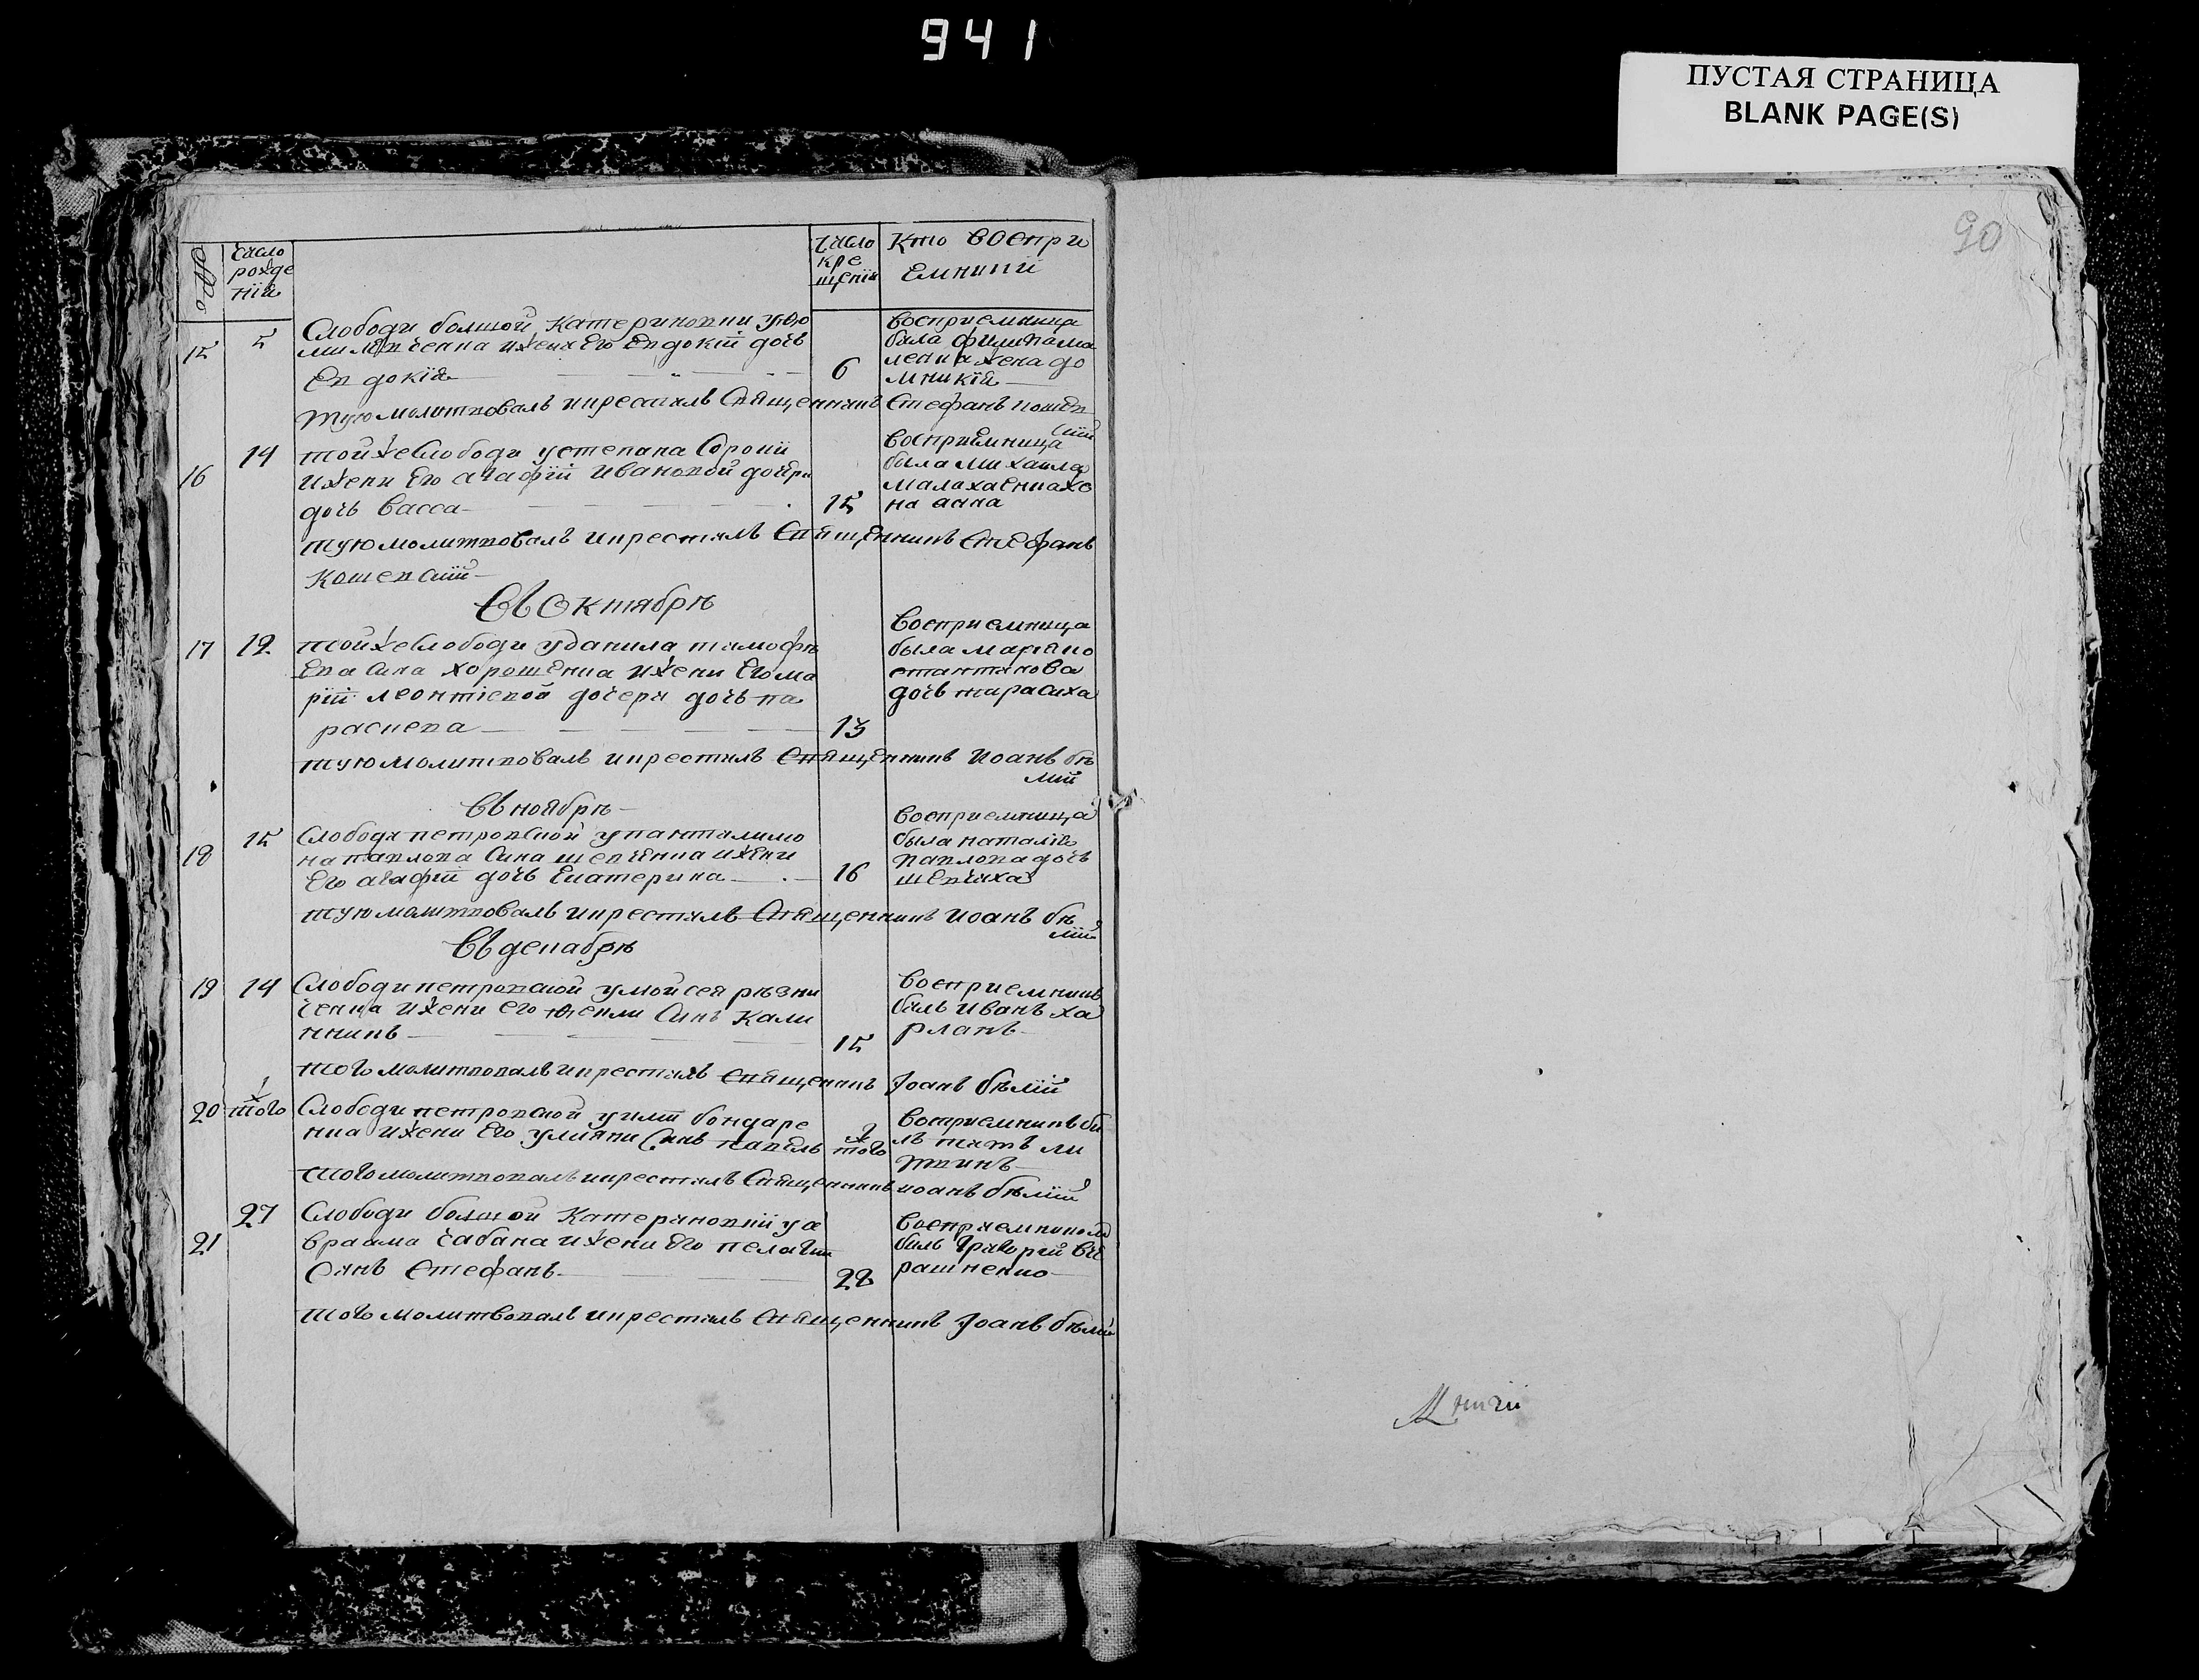 941
ПУСТАЯ СТРАНИЦА
BLANK PAGE(S)
90
№
число рожденій
число крещенія
Кто воспри
емники
15
5
Слободи болшой Катериновки у
жени Его Евдокіи дочь
Евдокія
6
восприемница
была Филипа
жена до
мникія
тую молитвовалъ и крестилъ Священникъ Стефанъ Кошев
скій
16
14
той же Слободи у степана Сороки
и жени Его агафіи Ивановой дочери
дочь Васса
15
восприемница
была михаила
малахаенка же
на анна
тую молитвовалъ и крестилъ Священникъ Стефанъ
Кошевскій
Въ Октябрѣ
17
12
той же Слободи у данила тимофѣ
ева сина хорошенка и жени Его ма
ріи леонтіевой дочери дочь па
раскева
13
Восприемница
была маріа ко
стантинова
дочь тарасиха
тую молитвовалъ и крестилъ Священникъ Иоанъ бѣ
лій
Въ ноябрѣ
18
15
Слободи петровской у панталимо
на павлова сина шевченка и жени
Его агафіи дочь Екатерина
16
Восприемница
была наталія
павлова дочь
шевчиха
тую молитвовалъ и крестилъ Священникъ Иоанъ бѣ
лій
Въ декабрѣ
19
14
Слободи петровской у мойсея рѣзни
ченка и жени его Фекли Синъ Кали
нникъ
15
Восприемникъ
билъ Иванъ ха
рланъ
того молитвовалъ и крестилъ Священникъ Іоанъ бѣлій
20
того ж
Слободи петровской у иліи бондаре
нка и жени Его улияни Синъ павелъ
того ж
Восприемникъ би
лъ
того молитвовалъ и крестилъ Священникъ иоанъ бѣлій
21
27
Слободи болшой Катериновкіи у а
враама чабана и жени Его пелагии
Синъ Стефанъ
28
Восприемникомъ
билъ Григорій
того молитвовалъ и крестилъ Священникъ Іоанъ бѣлій